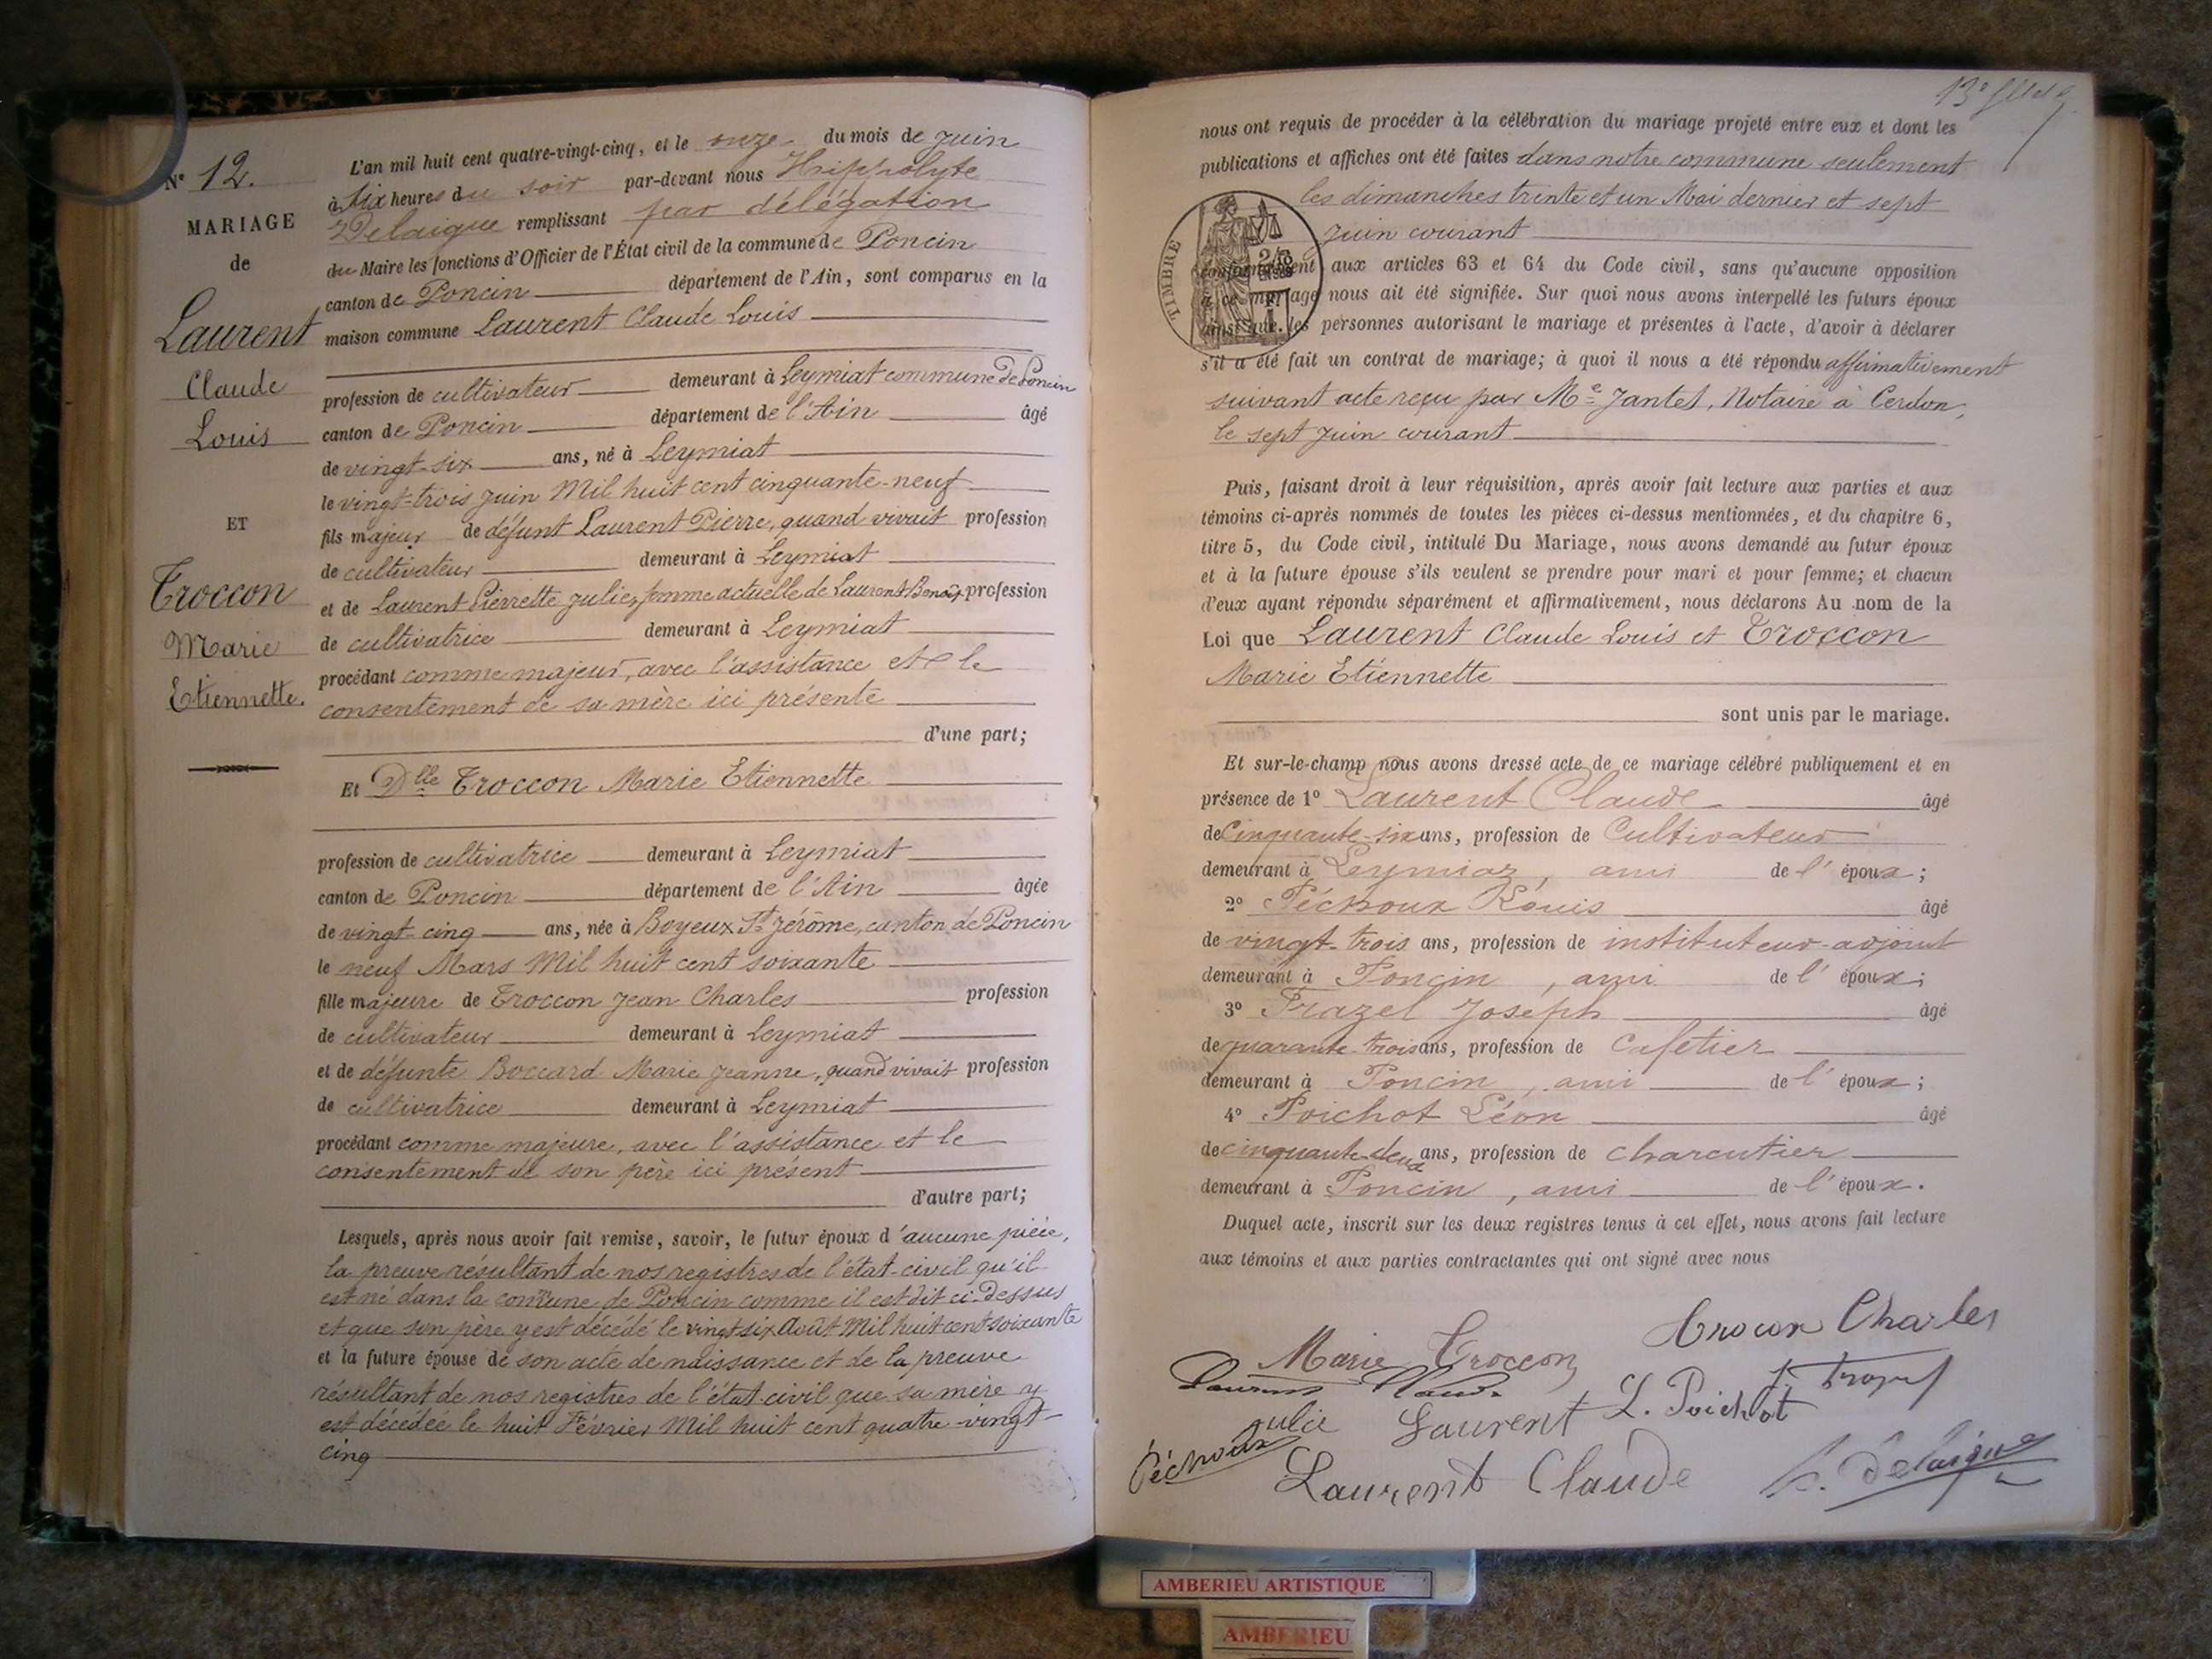 N° 12.
MARIAGE
de
Laurent
Claude
Louis
ET
Troccon
Marie
Etiennette.
L'an mil huit cent quatre-vingt-cinq, et le onze du mois de Juin
à six heures du soir par-devant nous Hippolyte
Delaigue remplissant par délégation
du Maire les fonctions d'Officier de l'État civil de la commune de Poncin
canton de Poncin département de l'Ain, sont comparus en la
maison commune Laurent Claude Louis
profession de cultivateur demeurant à Leymiat commune de Poncin
canton de Poncin département de l'Ain âgé
de vingt-six ans, né à Leymiat
le vingt-trois Juin Mil huit cent cinquante-neuf
fils majeur de défunt Laurent Pierre, quand vivait profession
de cultivateur demeurant à Leymiat
et de Laurent Pierrette Julie, femme actuelle de Laurent Benoît, profession
de cultivatrice demeurant à Leymiat
procédant comme majeur, avec l'assistance et le
consentement de sa mère ici présente
d'une part;
Et Dlle Troccon Marie Etiennette
profession de cultivatrice demeurant à Leymiat
canton de Poncin département de l'Ain âgée
de vingt-cinq ans, née à Boyeux St Jérôme, canton de Poncin
le neuf Mars Mil huit cent soixante
fille majeure de Troccon Jean Charles profession
de cultivateur demeurant à Leymiat
et de défunte Boccard Marie Jeanne, quand vivait profession
de cultivatrice demeurant à Leymiat
procédant comme majeure, avec l'assistance et le
consentement de son père ici présent
d'autre part;
Lesquels, après nous avoir fait remise, savoir, le futur époux d'aucune pièce,
la preuve résultant de nos registres de l'état-civil qu'il
est né dans la commune de Poncin comme il est dit ci-dessus
et que son père y est décédé le vingt six Août Mil huit cent soixante
et la future épouse de son acte de naissance et de la preuve
résultant de nos registres de l'état-civil que sa mère y
est décédée le huit Février Mil huit cent quatre-vingt-
cinq
13e
nous ont requis de procéder à la célébration du mariage projeté entre eux et dont les
publications et affiches ont été faites dans notre commune seulement
les dimanches trente et un Mai dernier et sept
Juin courant
TIMBRE
conformément aux articles 63 et 64 du Code civil, sans qu'aucune opposition
à ce mariage nous ait été signifiée. Sur quoi nous avons interpellé les futurs époux
ainsi que les personnes autorisant le mariage et présentes à l'acte, d'avoir à déclarer
s'il a été fait un contrat de mariage; à quoi il nous a été répondu affirmativement
suivant acte reçu par Me Jantet, Notaire à Cerdon,
le sept Juin courant
Puis, faisant droit à leur réquisition, après avoir fait lecture aux parties et aux
témoins ci-après nommés de toutes les pièces ci-dessus mentionnées, et du chapitre 6,
titre 5, du Code civil, intitulé Du Mariage, nous avons demandé au futur époux
et à la future épouse s'ils veulent se prendre pour mari et pour femme; et chacun
d'eux ayant répondu séparément et affirmativement, nous déclarons Au nom de la
Loi que Laurent Claude Louis et Troccon
Marie Etiennette
sont unis par le mariage.
Et sur-le-champ nous avons dressé acte de ce mariage célébré publiquement et en
présence de 1° Laurent Claude âgé
de Cinquante-six ans, profession de Cultivateur
demeurant à Leymiaz, ami de l'époux;
2° Péchoux Louis âgé
de vingt-trois ans, profession de instituteur-adjoint
demeurant à Poncin, ami de l'époux;
3° Frazel Joseph âgé
de quarante-trois ans, profession de Cafetier
demeurant à Poncin, ami de l'époux;
4° Poichot Léon âgé
de cinquante-deux ans, profession de charcutier
demeurant à Poncin, ami de l'époux.
Duquel acte, inscrit sur les deux registres tenus à cet effet, nous avons fait lecture
aux témoins et aux parties contractantes qui ont signé avec nous
Marie Troccon Trocon Charles
Laurent Claude
Julie Laurent L. Poichot
Péchoux Laurent Claude h. Delaigue
AMBERIEU ARTISTIQUE
AMBERIEU